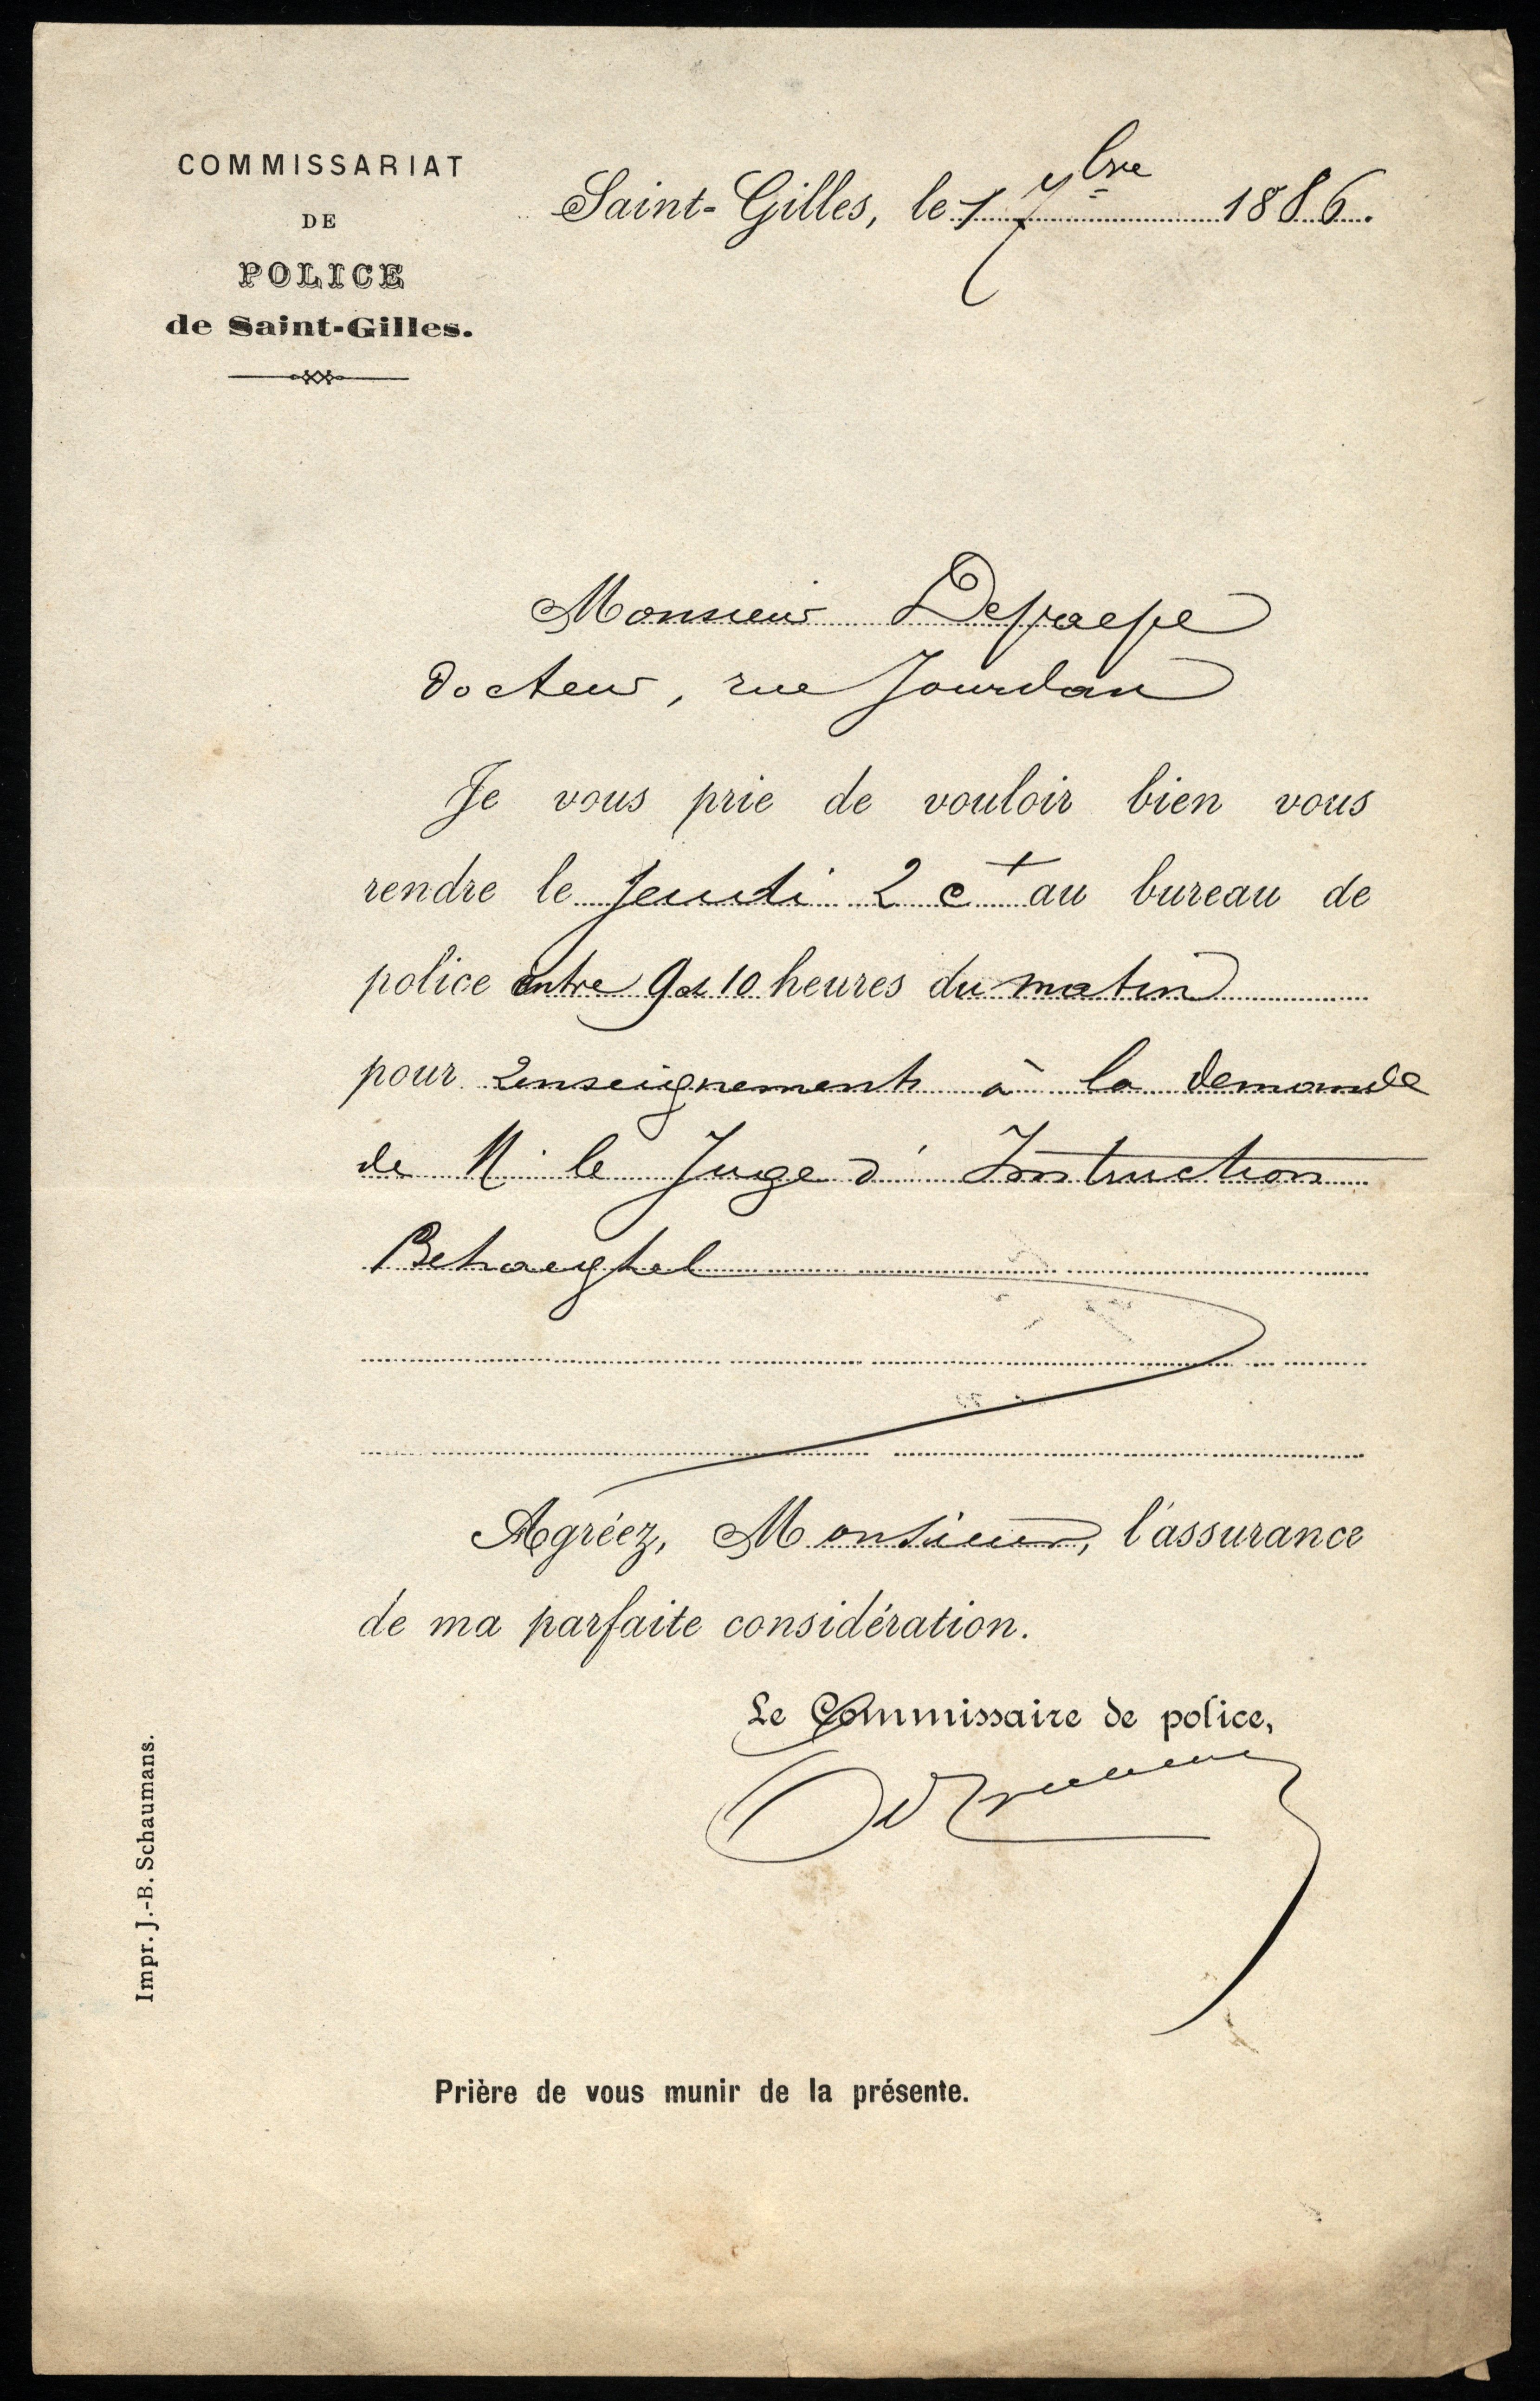 COMMISSARIAT
DE
POLICE
de Saint-Gilles.
Saint-Gilles, le 1 7bre 1886.
Monsieur Depaepe
Docteur, rue Jourdan
Je vous prie de vouloir bien vous
rendre le jeudi 2 ct au bureau de
police entre 9 et 10 heures du matin
pour renseignements à la demande
de M. le Juge d'Instruction
Behaeghel
Agréez, Monsieur, l'assurance
de ma parfaite considération.
Le Commissaire de police,
Impr. J.-B. Schaumans.
Prière de vous munir de la présente.